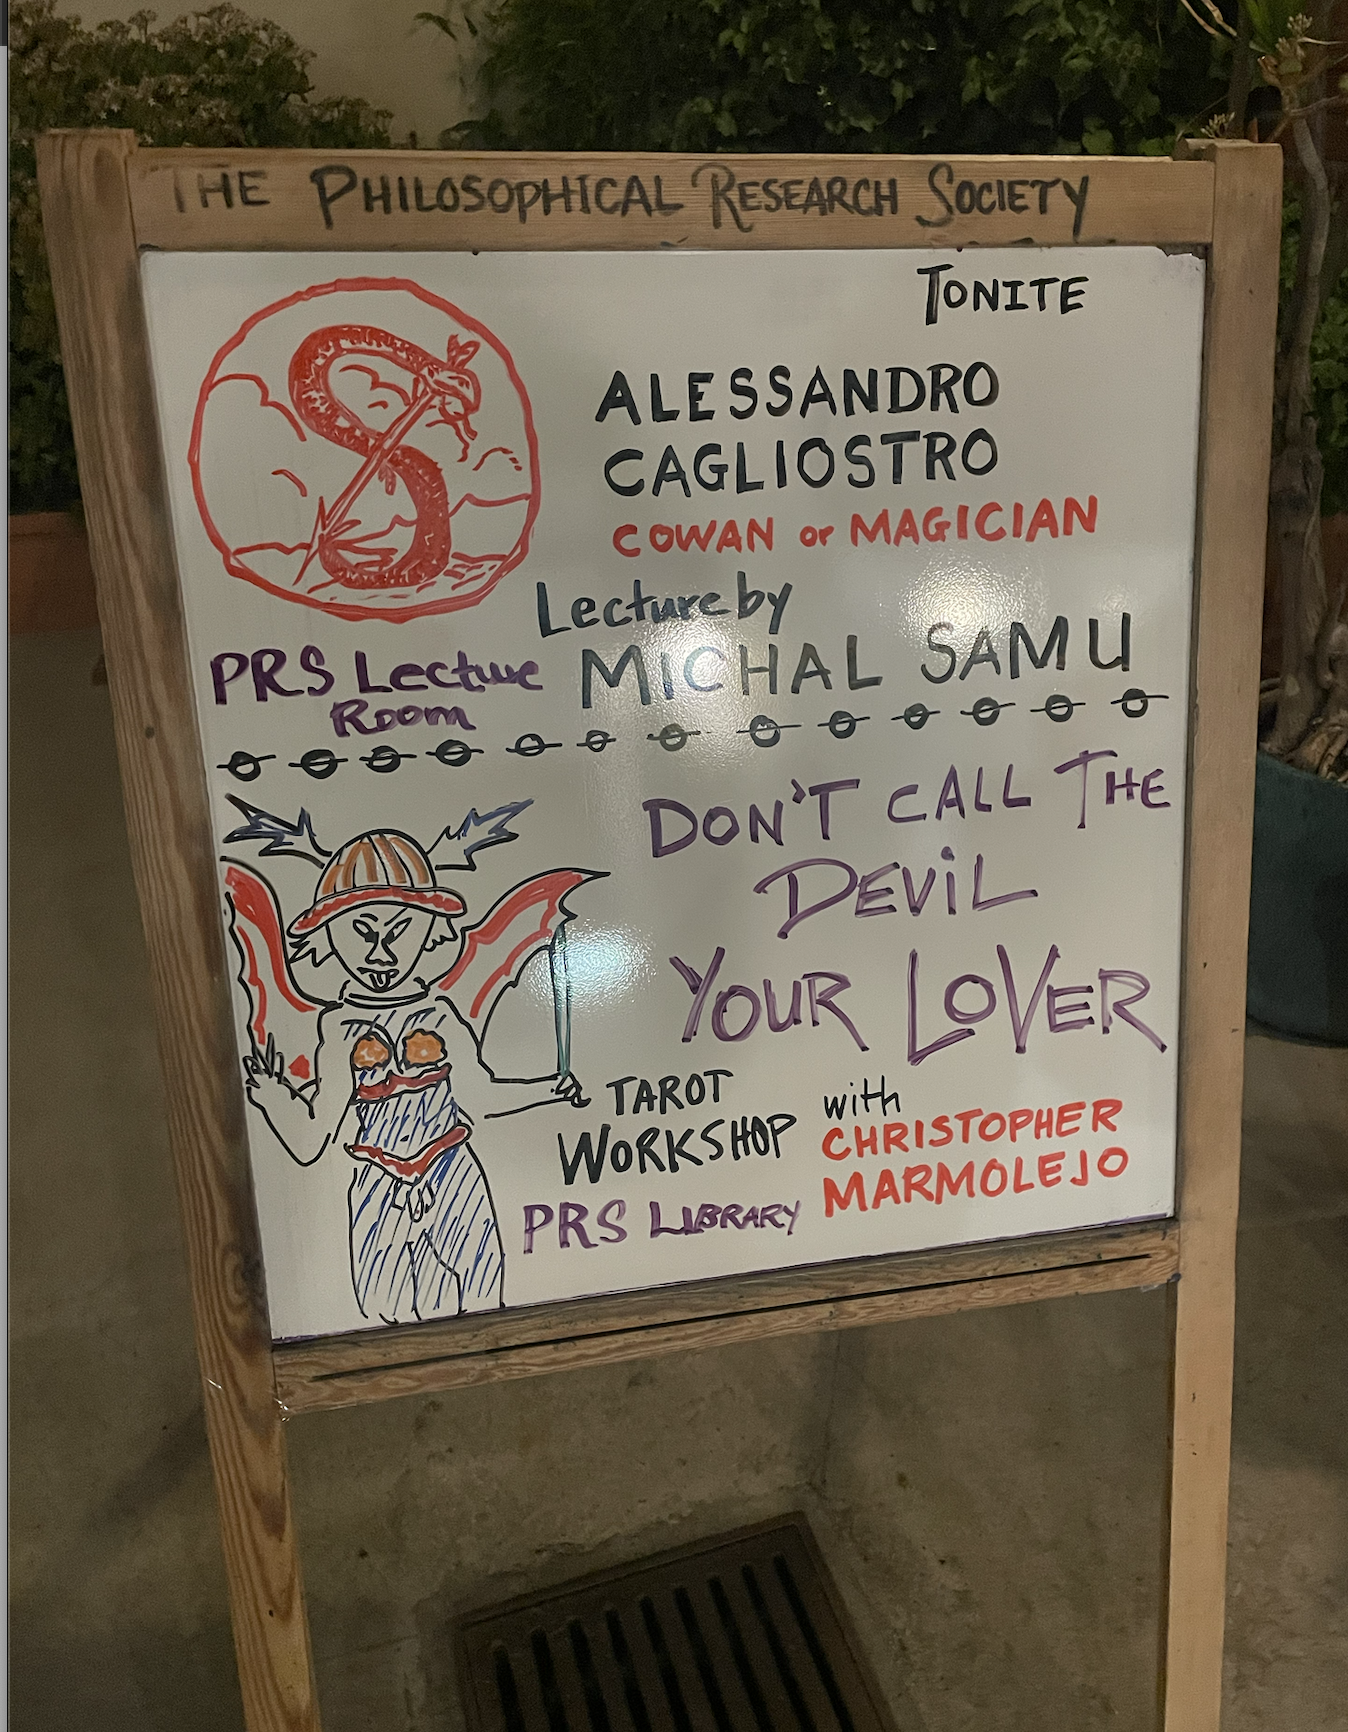 THE PHILOSOPHICAL RESEARCH SOCIETY
TONITE
ALESSANDRO
CAGLIOSTRO
COWAN or MAGICIAN
Lecture by
MICHAL SAMU
PRS Lecture
Room
DON'T CALL THE
DEViL
YOUR LOVER
TAROT
WORKSHOP
with
CHRISTOPHER
MARMOLEJO
PRS LIBRARY